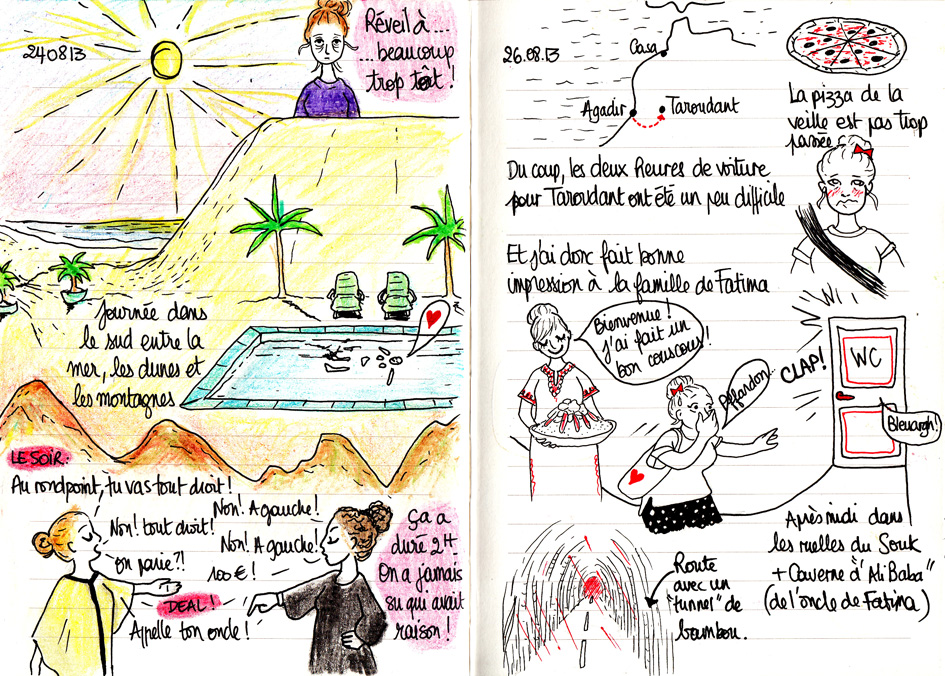 240813
Réveil à...
...beaucoup
trop tôt !
Journée dans
le sud entre la
mer, les dunes et
les montagnes
LE SOIR :
Au rondpoint, tu vas tout droit !
Non ! A gauche !
Non ! tout droit !
Non ! A gauche !
on parie ?!
100 € !
DEAL !
Appelle ton oncle !
ça a
duré 2H
On a jamais
su qui avait
raison !
26.08.13
Casa
Agadir
Taroudant
La pizza de la
veille est pas trop
passée
Du coup, les deux heures de voiture
pour Taroudant ont été un peu difficile
Et j'ai donc fait bonne
impression à la famille de Fatima
Bienvenue !
J'ai fait un
bon couscous !
CLAP !
WC
Bleuargh !
Après midi dans
les ruelles du Souk
+ Caverne d'Ali Baba"
(de l'oncle de Fatima)
Route
avec un
"tunnel" de
bambou.